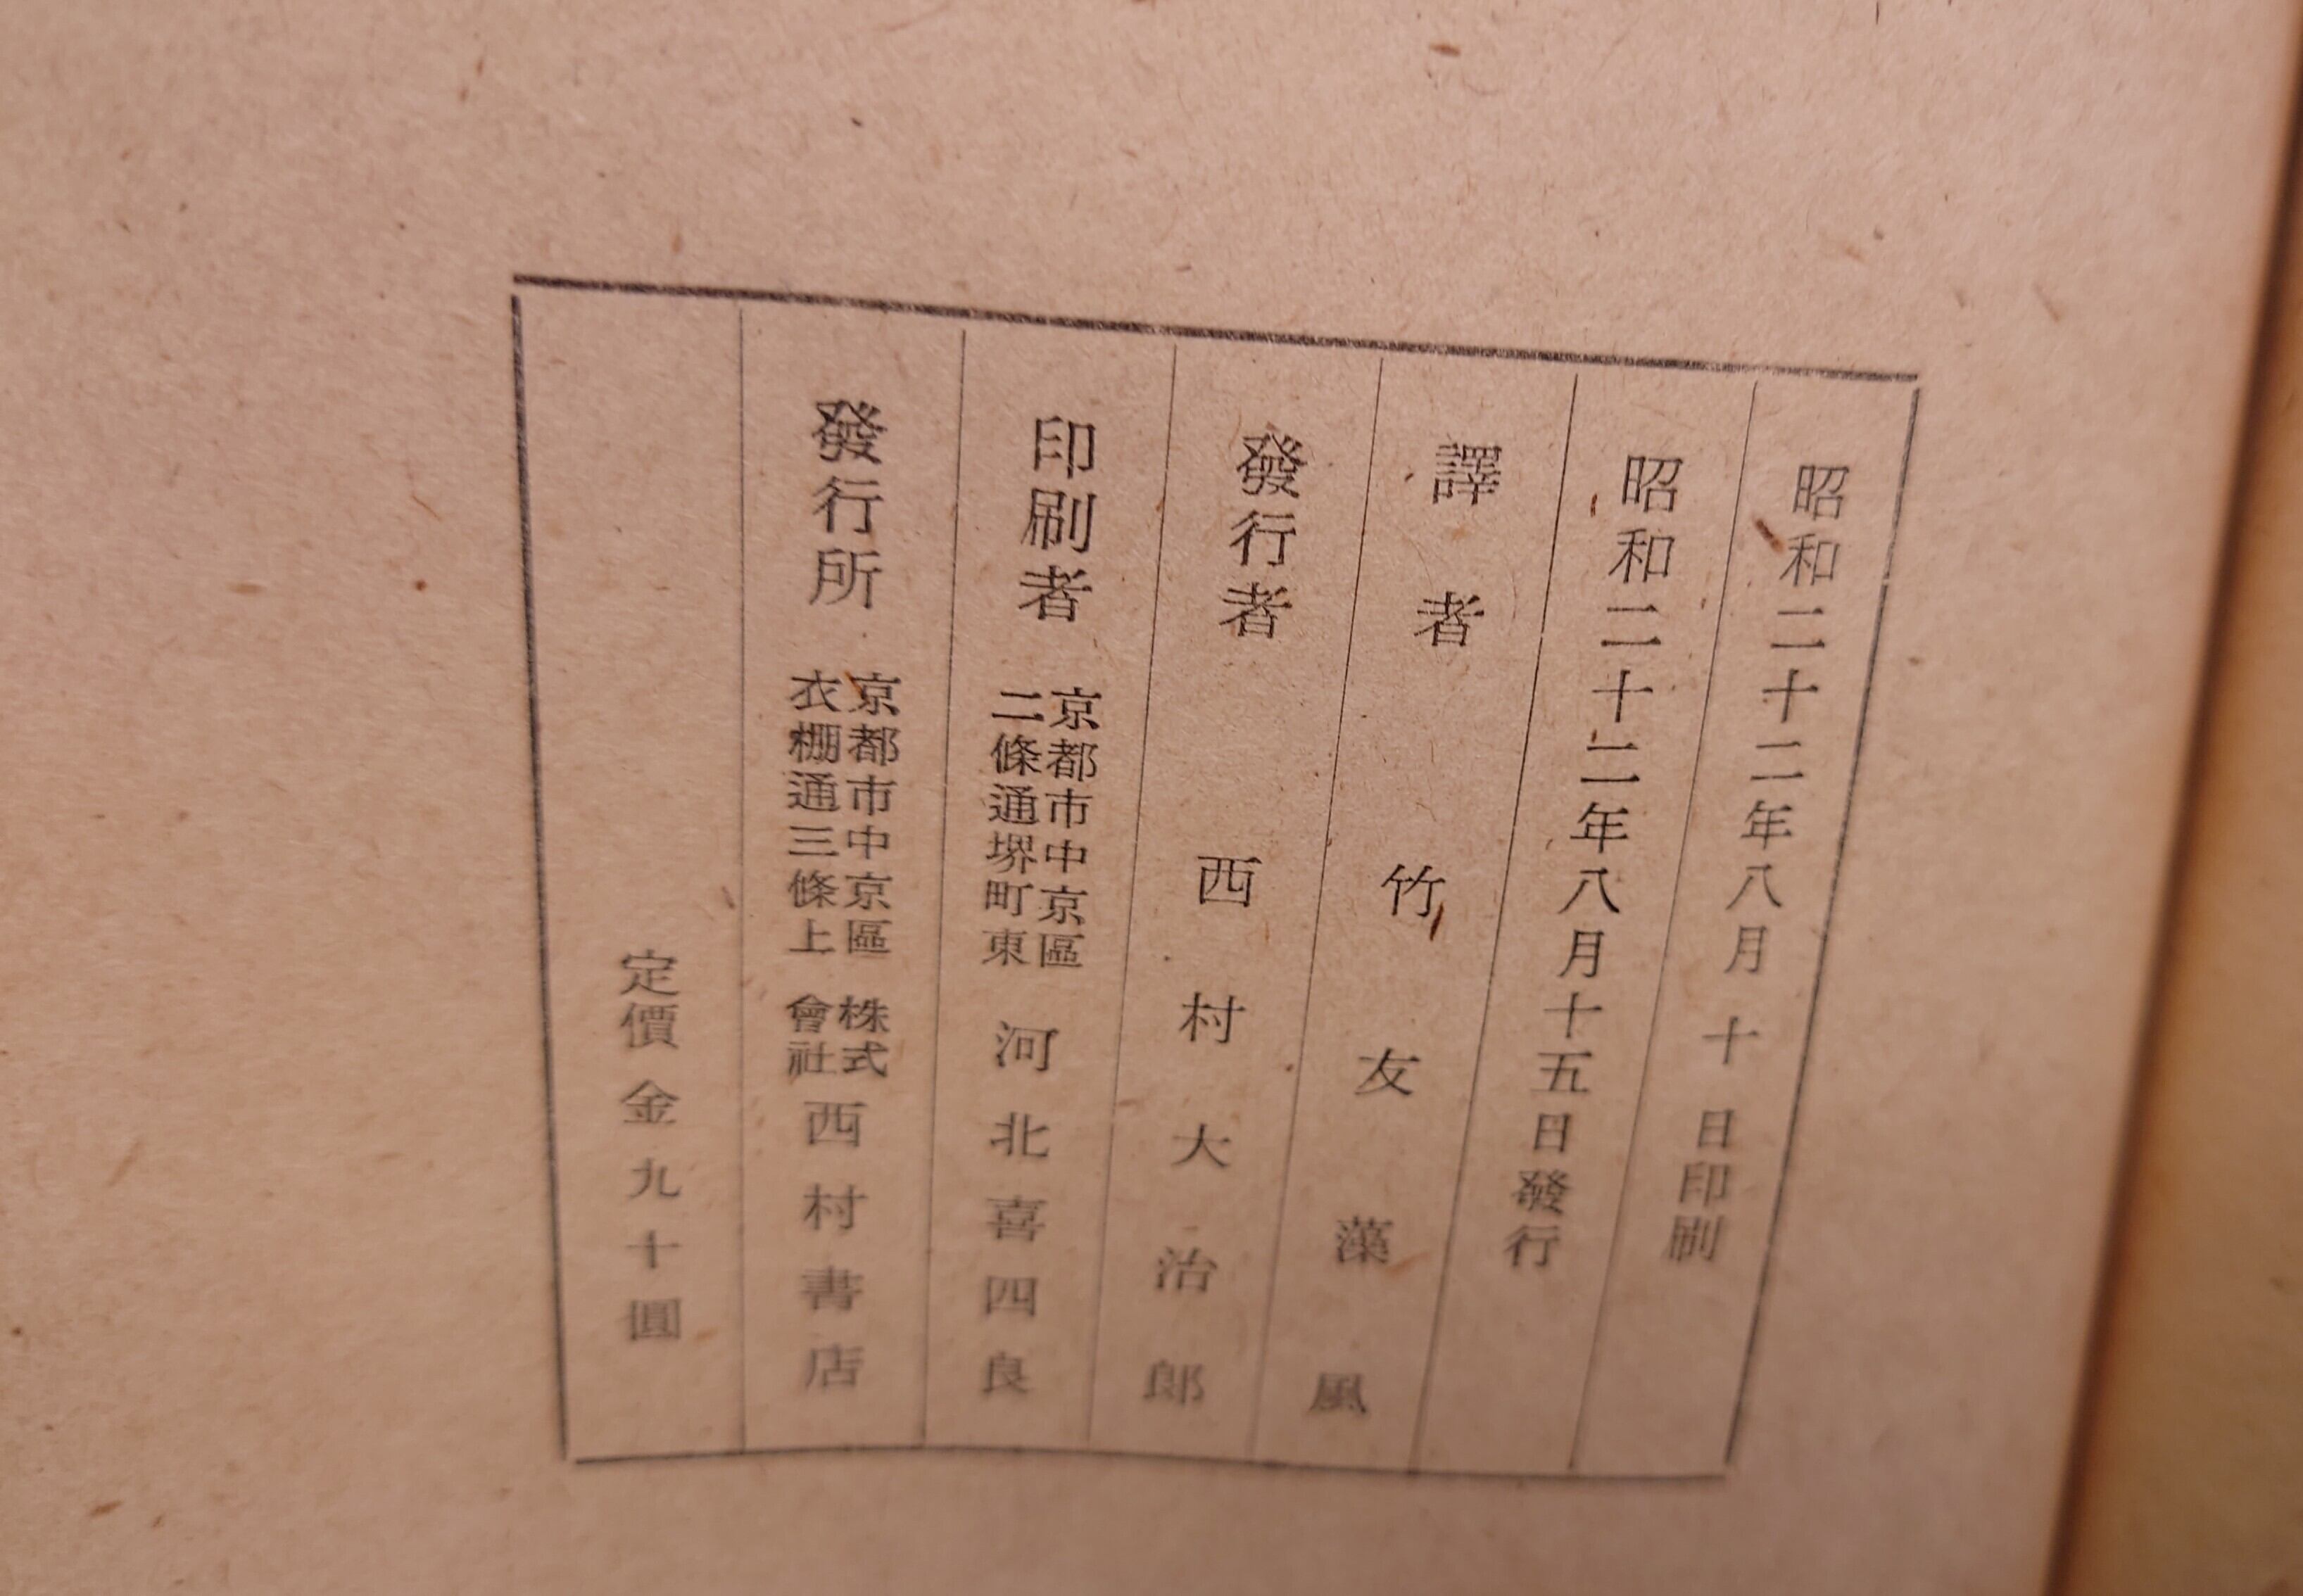 昭和二十二年八月十日印刷
昭和二十二年八月十五日發行
譯者 竹友藻風
發行者 西村大治郎
印刷者 京都市中京區
二條通堺町東 河北喜四良
發行所 京都市中京區
衣棚通三條上 株式
會社 西村書店
定價金九十圓